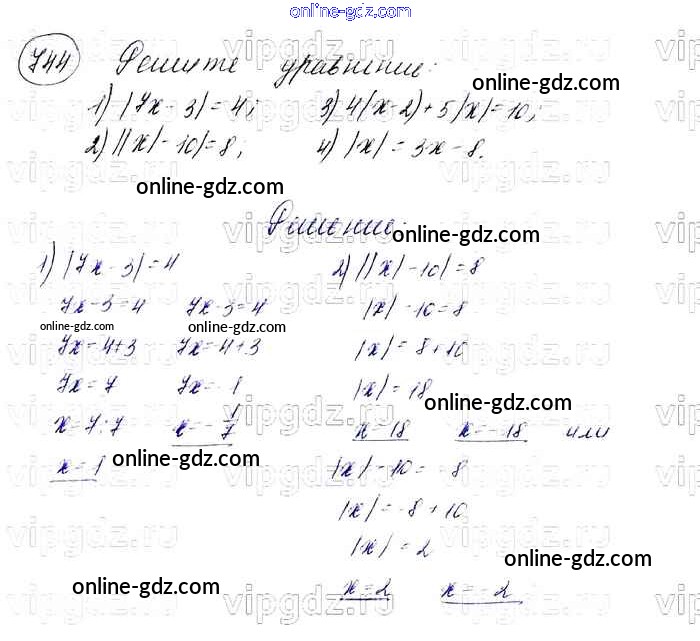 online-gdz.com
744 Решите уравнение:
1) |7x - 3| = 4; 3) 4(x-2) + 5|x| = 10;
online-gdz.com
2) ||x| - 10| = 8; 4) |x| = 3x - 8.
online-gdz.com
Решение:
online-gdz.com
1) |7x - 3| = 4 2) ||x| - 10| = 8
7x - 3 = 4 7x - 3 = 4 |x| - 10 = 8
online-gdz.com online-gdz.com
7x = 4+3 7x = 4+3 |x| = 8 + 10
7x = 7 7x = -1 |x| = 18
online-gdz.com
x = 7:7 x = -1/7 x = 18 x = -18 или
x = 1 |x| - 10 = -8
online-gdz.com
|x| = -8 + 10
|x| = 2
online-gdz.com
x = 2 x = -2
online-gdz.com